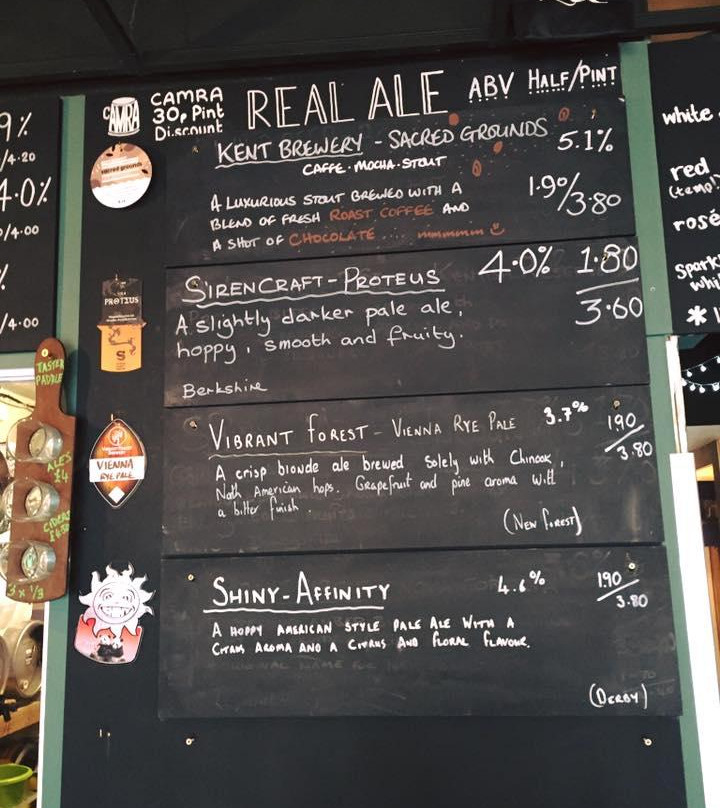 9%
/4.20
4.0%
0/4.00
%
/4.00
CAMRA
CAMRA
30p Pint
Discount
REAL ALE
ABV HALF/PINT
KENT BREWERY - SACRED GROUNDS 5.1%
CAFFE·MOCHA·STOUT
A LUXURIOUS STOUT BREWED WITH A
BLEND OF FRESH ROAST COFFEE AND
A SHOT OF CHOCOLATE .... mmmmmm
1.90/3.80
PROTEUS
S
SIRENCRAFT-PROTEUS 4.0% 1.80
3.60
A slightly darker pale ale,
hoppy, smooth and fruity.
Berkshire
TASTER
PADDLE
ALES
£4
CIDERS
3 x 1/3
VIENNA
RYE PALE
VIBRANT FOREST - VIENNA RYE PALE 3.7% 190
3.80
A crisp blonde ale brewed solely with Chinook,
Noth American hops. Grapefruit and pine aroma with
a bitter finish.
(NEW FOREST)
SHINY-AFFINITY 4.6% 190
3.80
A HOPPY AMERICAN STYLE PALE ALE WITH A
CITRUS AROMA AND A CITRUS AND FLORAL FLAVOUR.
(DERBY)
white
red
(temp
rosé
Spark
whi
*